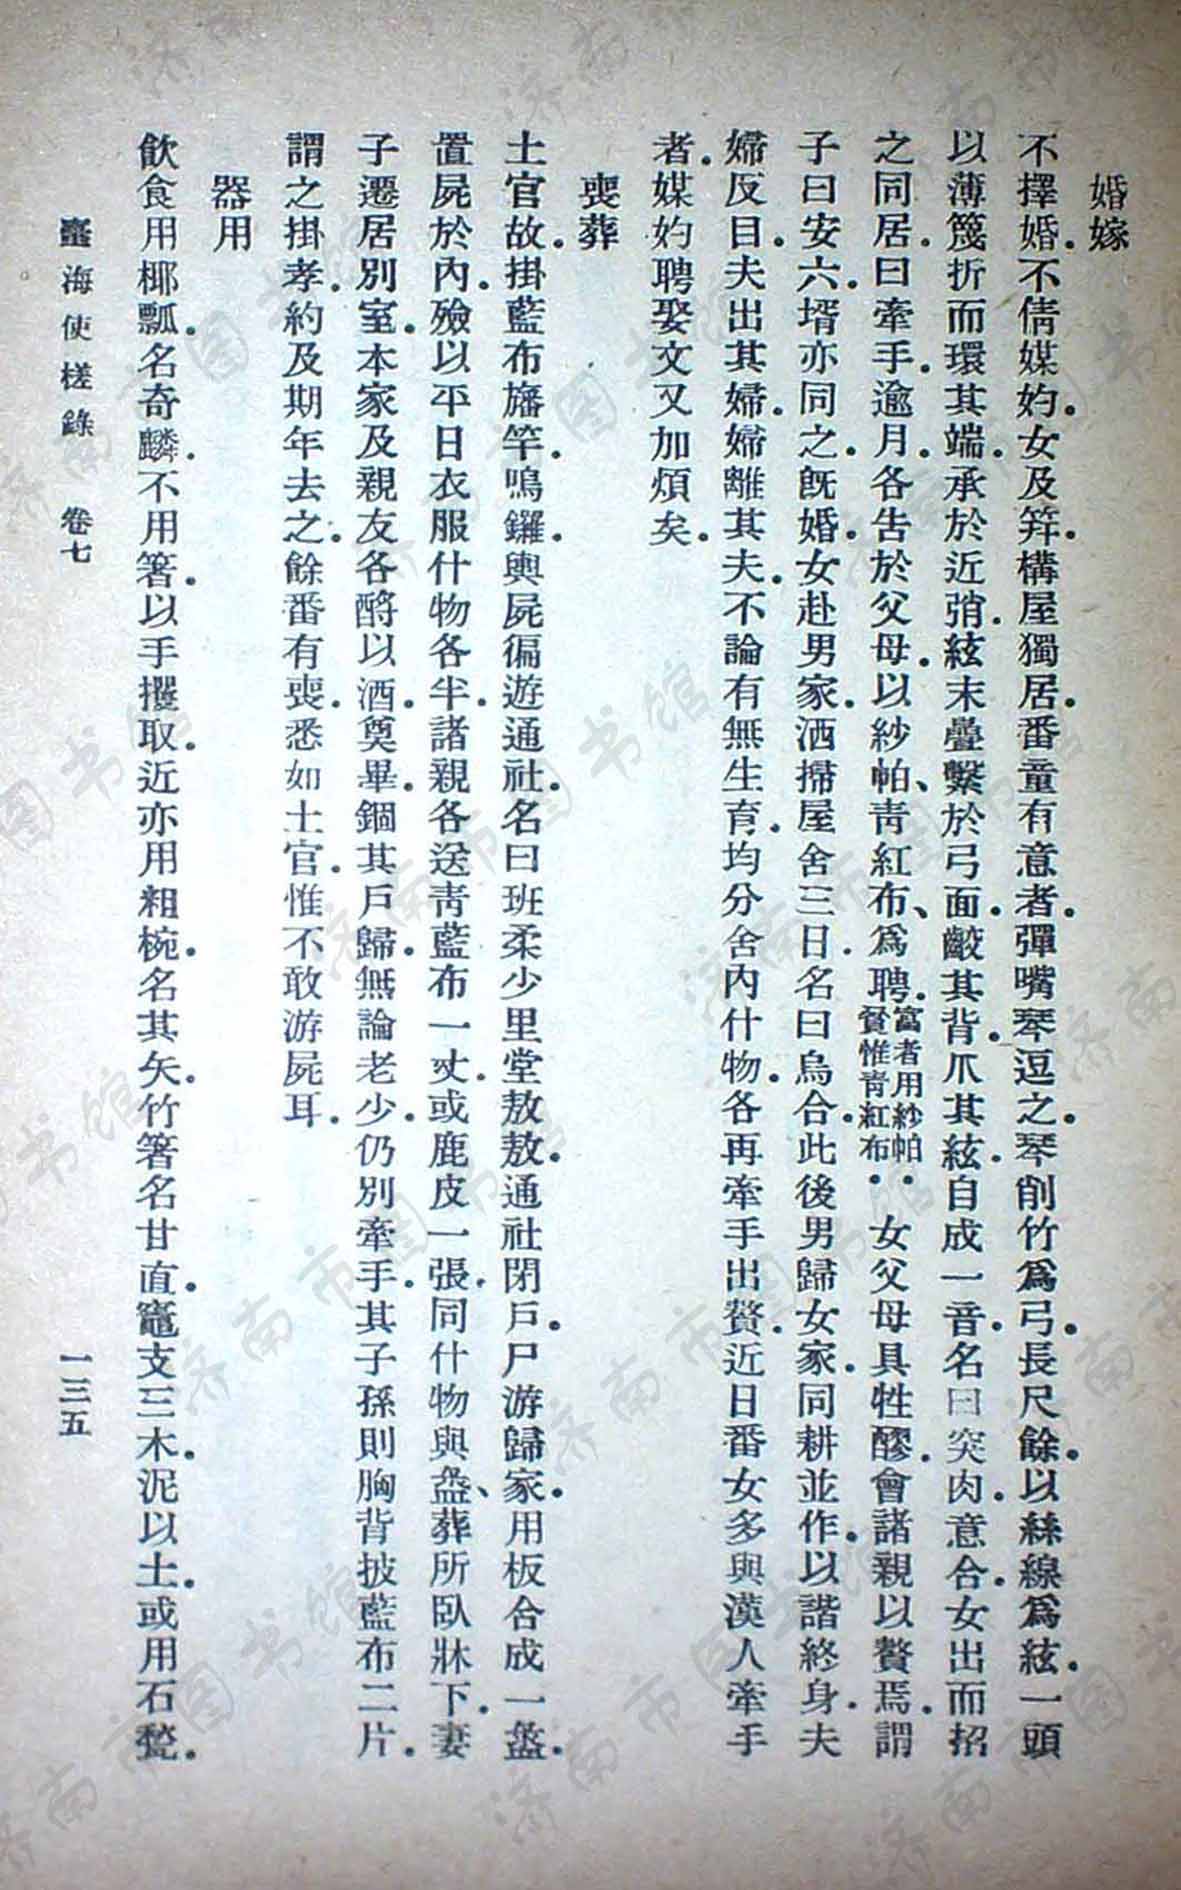 婚嫁
不擇婚.不倩媒妁.女及笄.構屋獨居.番童有意者.彈嘴琴逗之.琴削竹爲弓.長尺餘.以絲線爲絃.一頭
以薄篾折而環其端.承於近弰.絃末疊繫於弓面.齩其背.爪其絃.自成一音.名曰突肉.意合.女出而招
之同居.曰牽手.逾月.各告於父母.以紗帕、青紅布、爲聘.富者用紗帕貧惟青紅布..女父母具牲醪.會諸親以贅焉.謂
子曰安六.壻亦同之.既婚.女赴男家.洒掃屋舍三日.名曰烏合.此後男歸女家.同耕並作.以諧終身.夫
婦反目.夫出其婦.婦離其夫.不論有無生育.均分舍內什物.各再牽手出贅.近日番女多與漢人牽手
者.媒妁聘娶文又加煩矣.
喪葬
土官故.掛藍布旛竿.鳴鑼.輿屍徧遊通社.名曰班柔少里堂敖敖.通社閉戶.尸游歸家.用板合成一盤.
置屍於內.殮以平日衣服什物各半.諸親各送青藍布一丈.或鹿皮一張.同什物與盤、葬所臥牀下.妻
子遷居別室.本家及親友各酹以酒.奠畢.錮其戶歸.無論老少.仍別牽手.其子孫則胸背披藍布二片.
謂之掛孝.約及期年去之.餘番有喪.悉如土官.惟不敢游屍耳.
器用
飲食用椰瓢.名奇麟.不用箸.以手攫取.近亦用粗椀.名其矢.竹箸名甘直.竈支三木.泥以土.或用石甃.
臺海使槎錄 卷七
一三五
济南市图书馆